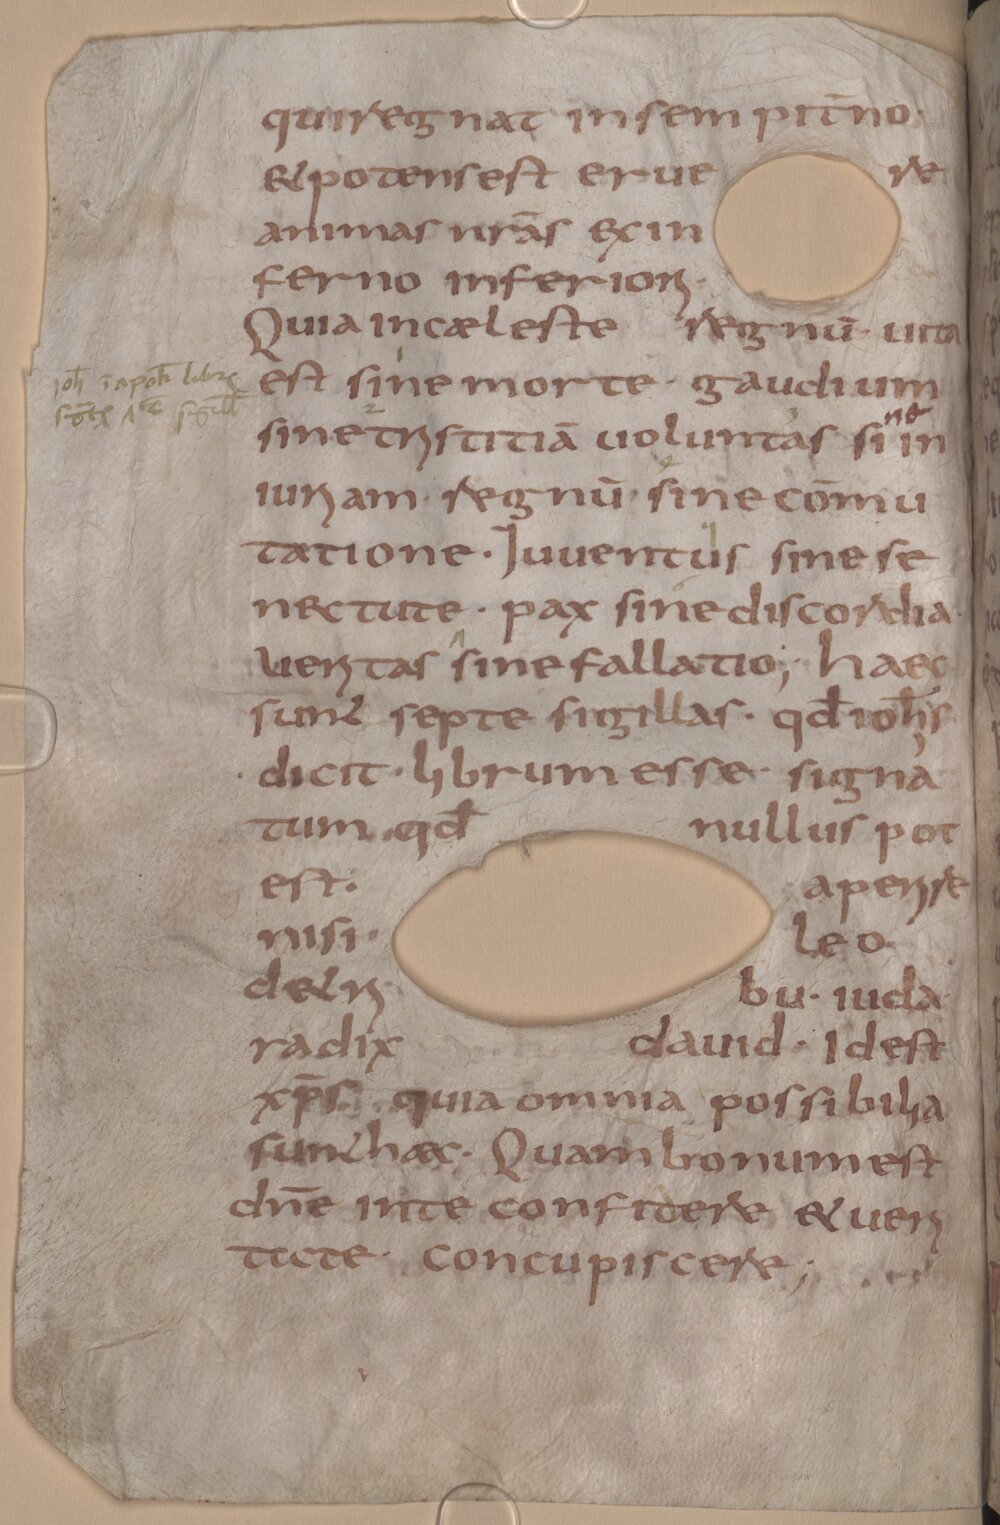 qui regnat in sempit̄no·
& potens est erue re
animas nr̄as ex in
ferno inferiori·
Quia in cæleste regnū· uita
est sine morte· gaudium
sine tristitiā uoluntas sine in
iuriam· regnū· sine cōmu
tatione· Iuuentus sine se
nectute· pax sine discordia·
ueritas sine fallatio; haec
sunt septe sigillas· qđ ioħs
dicit· librum esse· signa
tum· qđ nullus pot
est· aperire
nisi· leo
de tri bu· iuda
radix dauid· Id est
xp̄s· quia omnia possibilia
sunt haec· Quam bonum est
dn̄e in te confidere & ueri
ticte· concupiscere;